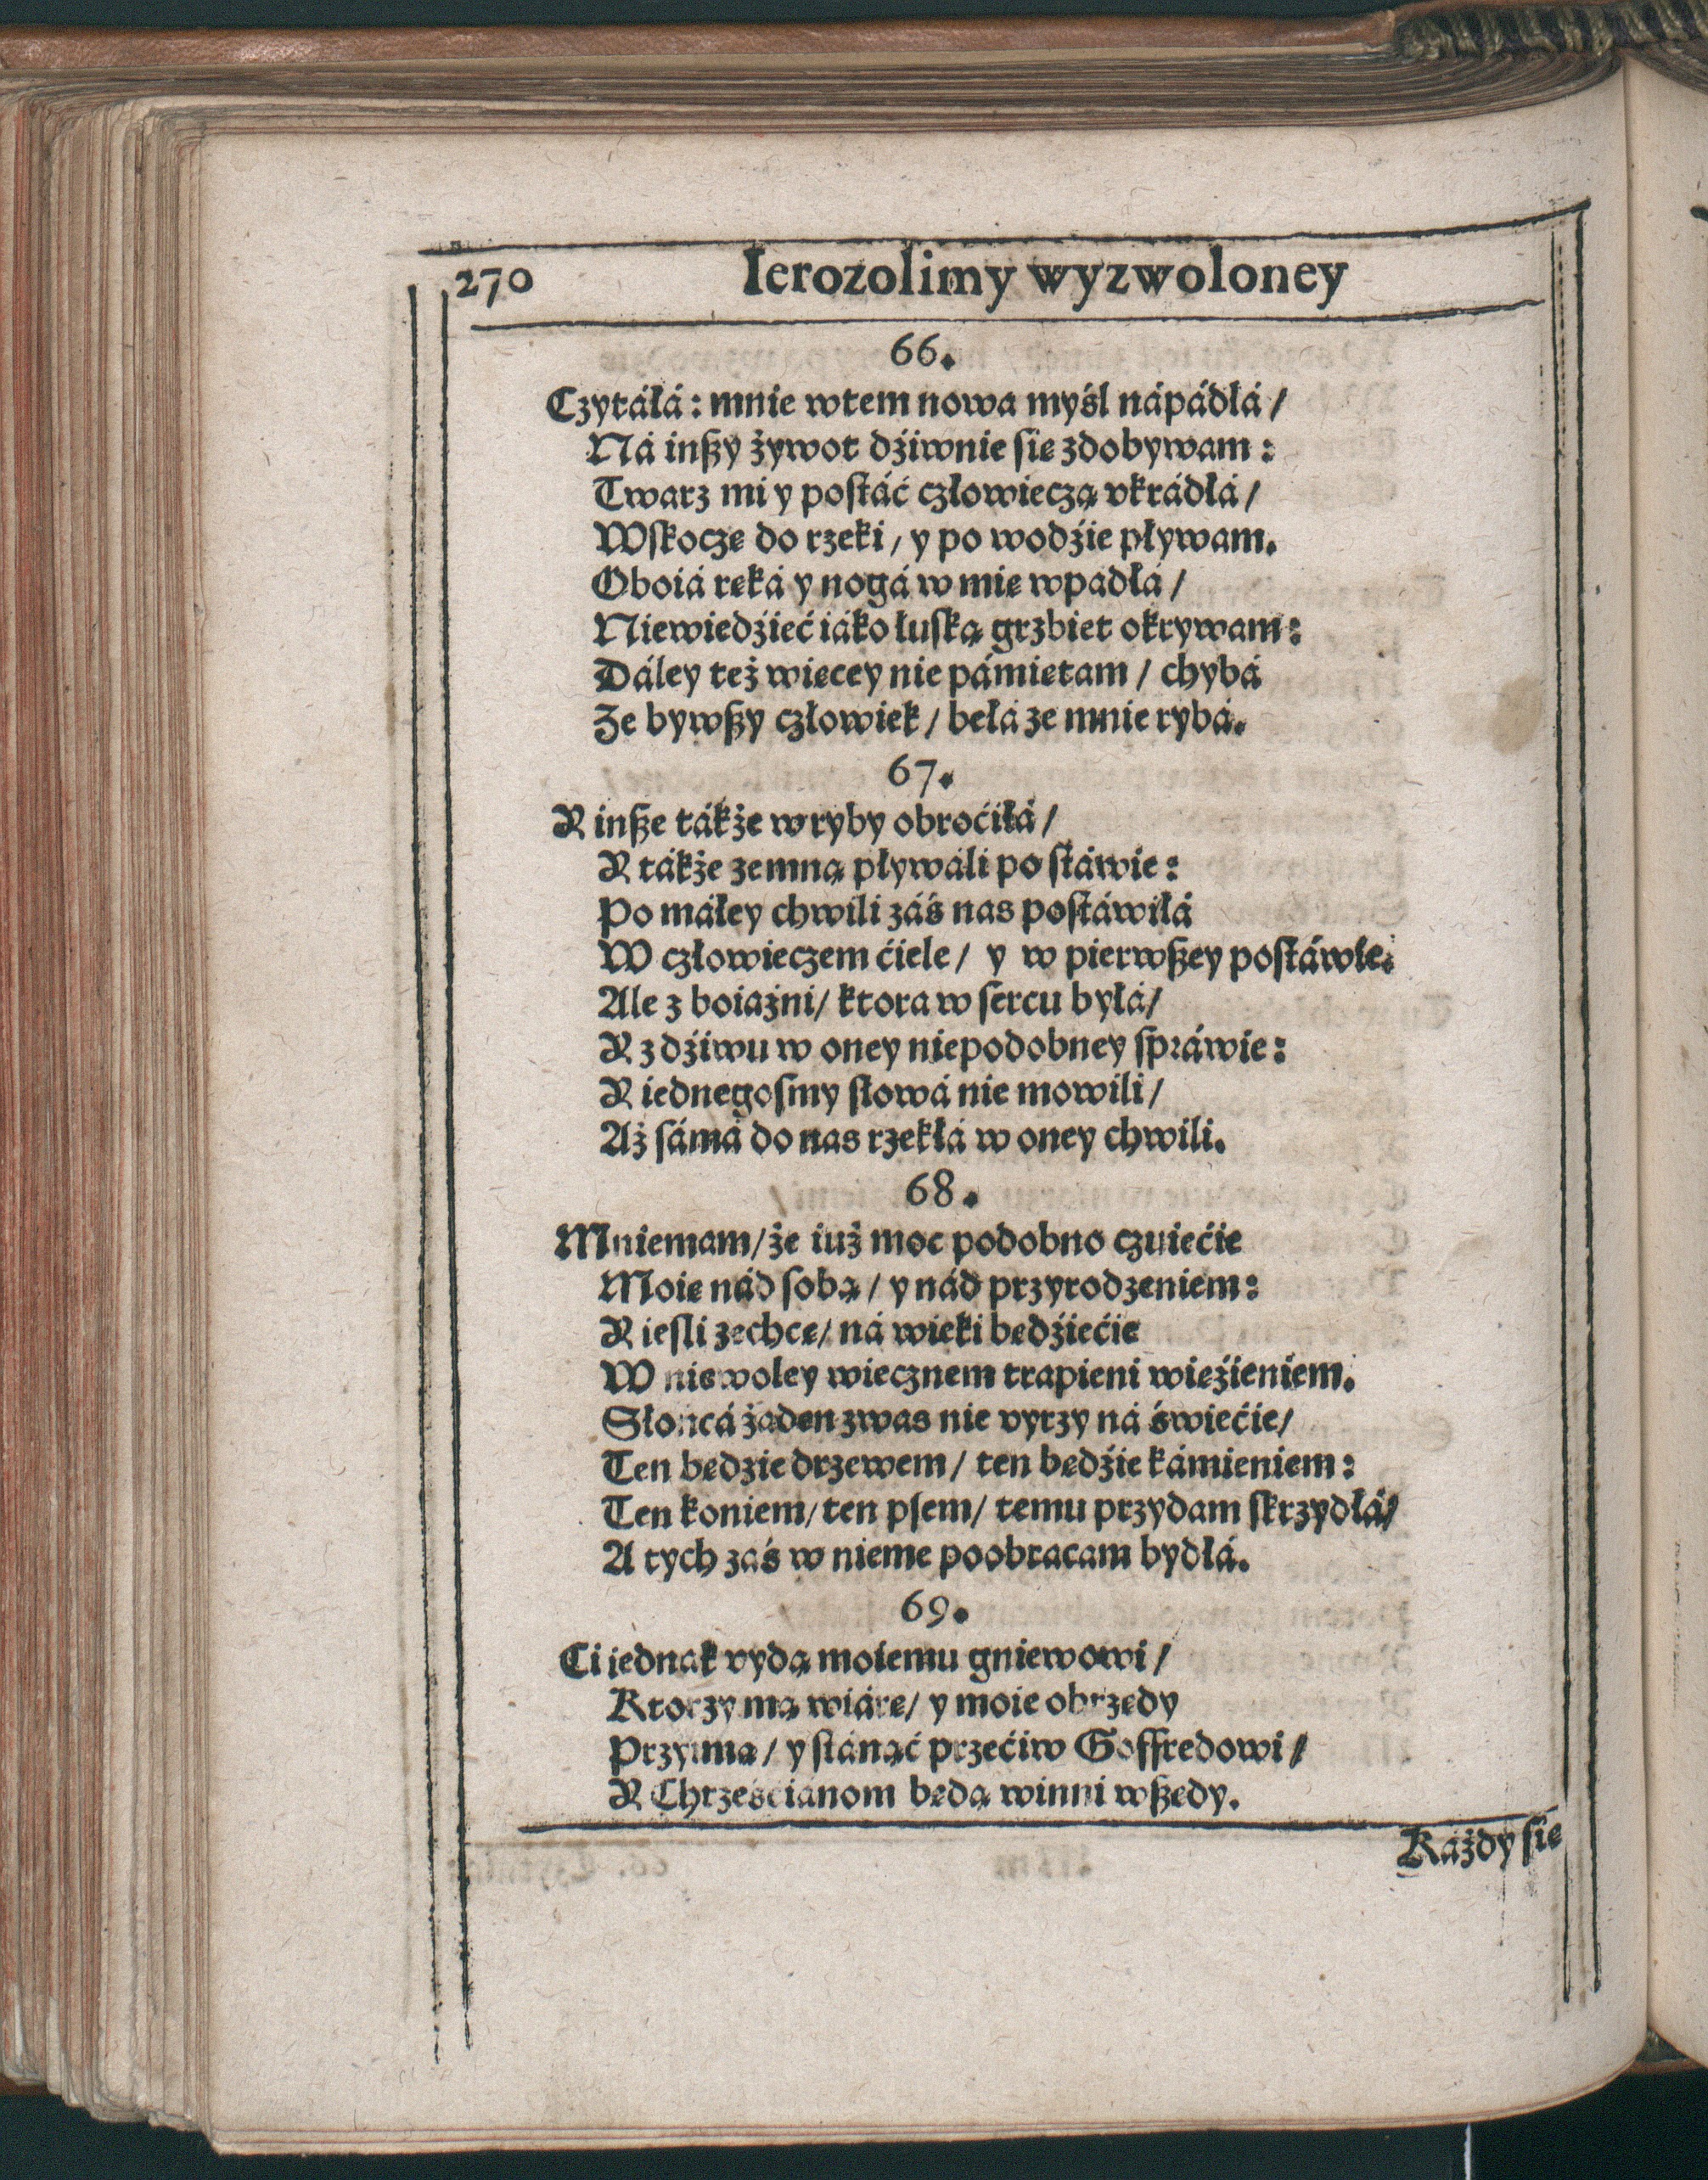 270 Ierozolimy wyzwoloney
66.
Czytáłá: mnie wtem nowa myśl nápádłá /
Ná inßy żywot dźiwnie się zdobywam:
Twarz mi y postáć człowieczą vkrádłá /
Wskoczę do rzeki / y po wodźie pływam.
Oboiá ręká y nogá w mię wpadłá /
Niewiedźieć iáko łuską grzbiet okrywam:
Dáley też więcey nie pámiętam / chybá
Że bywßy człowiek / bełá ze mnie rybá.
67.
Y inße tákże w ryby obroćiłá /
Y tákże zemną pływáli po stáwie:
Po máłey chwili záś nas postáwiłá
W człowieczem ćiele / y w pierwßey postáwie.
Ale z boiaźni / ktora w sercu byłá /
Y z dźiwu w oney niepodobney spráwie:
Y iednegosmy słowá nie mowili /
Aż sámá do nas rzekłá w oney chwili.
68.
Mniemam / że iuż moc podobno czuiećie
Moię nád sobą / y nád przyrodzeniem:
Y iesli zechcę / ná wieki będźiećie
W niewoley wiecznem trapieni więźieniem.
Słońcá żaden z was nie vyrzy ná świećie /
Ten będzie drzewem / ten będźie kámieniem:
Ten koniem / ten psem / temu przydam skrzydłá /
A tych zaś w nieme poobracam bydłá.
69.
Ci iednak vydą moiemu gniewowi /
Ktorzy mą wiárę / y moie obrzędy
Przyimą / y stánąć przećiw Goffredowi /
Y Chrześcianom będą winni wßędy.
Káżdy się